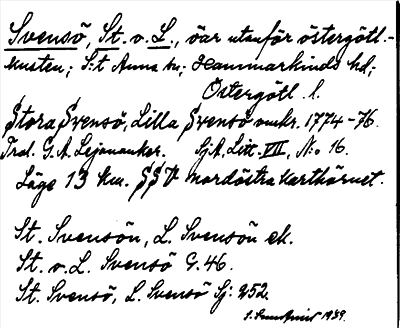 Svensö, St. o. L., öar utanför östergötl.-
kusten; S:t Anna sn; Hammarkinds hd;
Östergötl. l.
Stora Svensö, Lilla Svensö omkr. 1774-76.
G. A. Lejonanker. Sj.A. Litt. VII, N:o 16.
Läge 13 km. SSV nordöstra karthörnet.
St. Svensön, L. Svensön ek.
St. o. L. Svensö G. 46.
St. Svensö, L. Svensö Sj: 252.
1939.